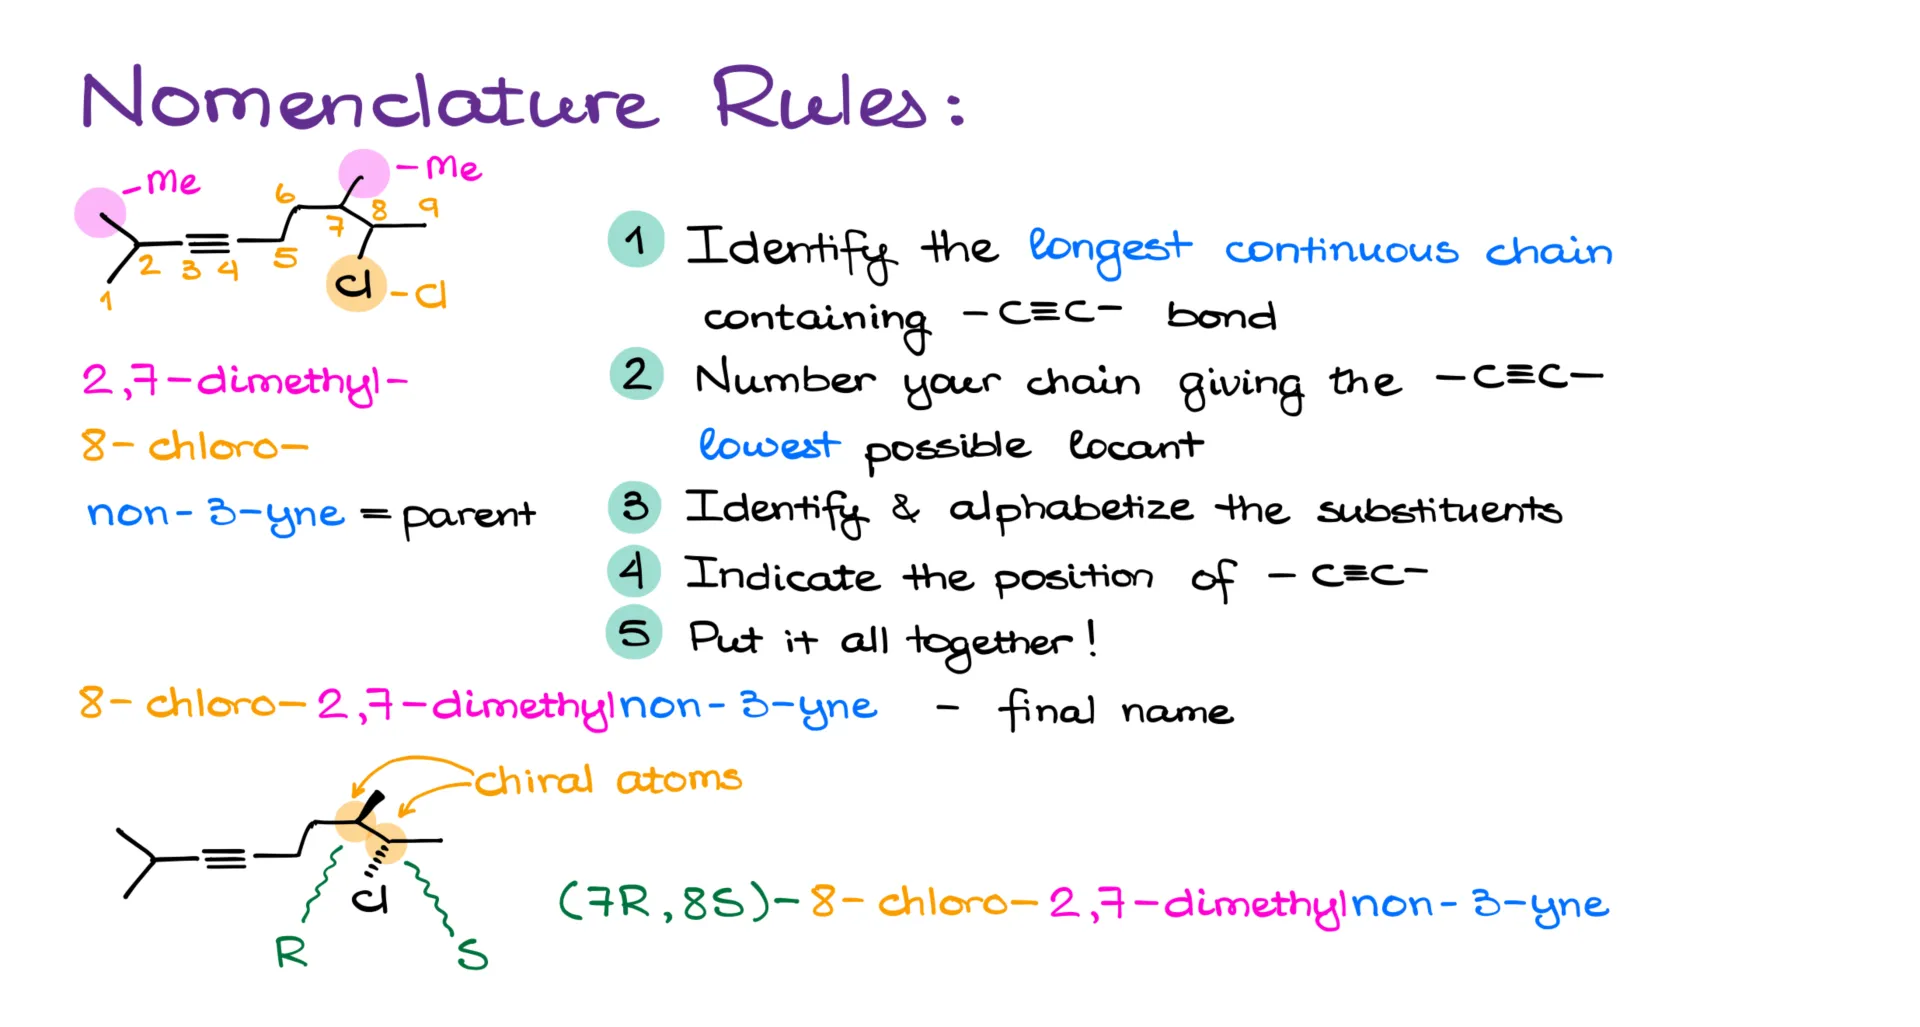 Nomenclature Rules:
-Me
-Me
1 2 3 4 5 6 7 8 9
Cl -Cl
2,7-dimethyl-
8-chloro-
non-3-yne = parent
1 Identify the longest continuous chain
containing -C≡C- bond
2 Number your chain giving the -C≡C-
lowest possible locant
3 Identify & alphabetize the substituents
4 Indicate the position of -C≡C-
5 Put it all together!
8-chloro-2,7-dimethylnon-3-yne - final name
chiral atoms
Cl
R
S
(7R,8S)-8-chloro-2,7-dimethylnon-3-yne